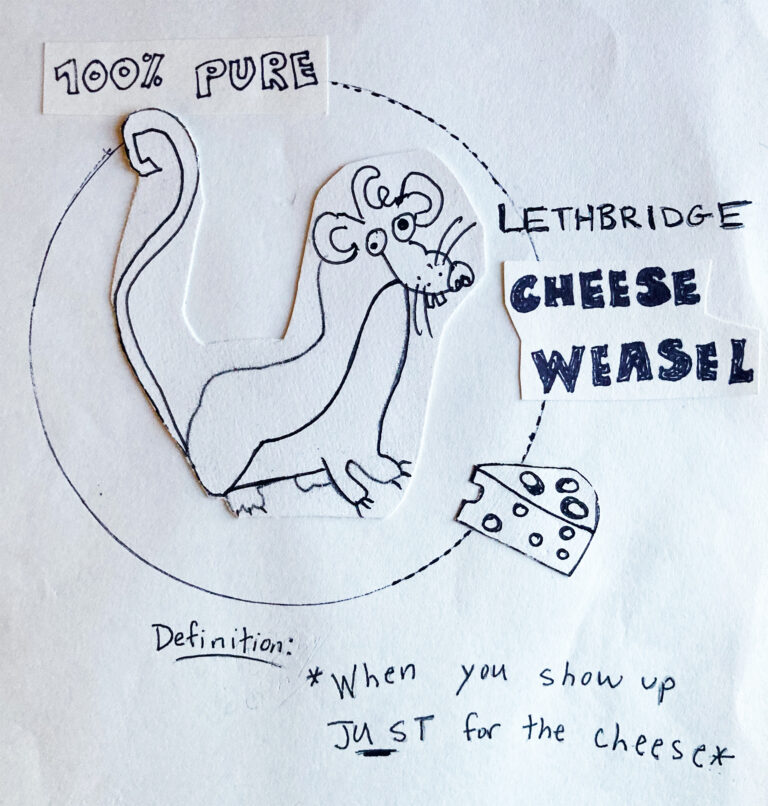 100% PURE
LETHBRIDGE
CHEESE
WEASEL
Definition:
*When you show up
JUST for the cheese*